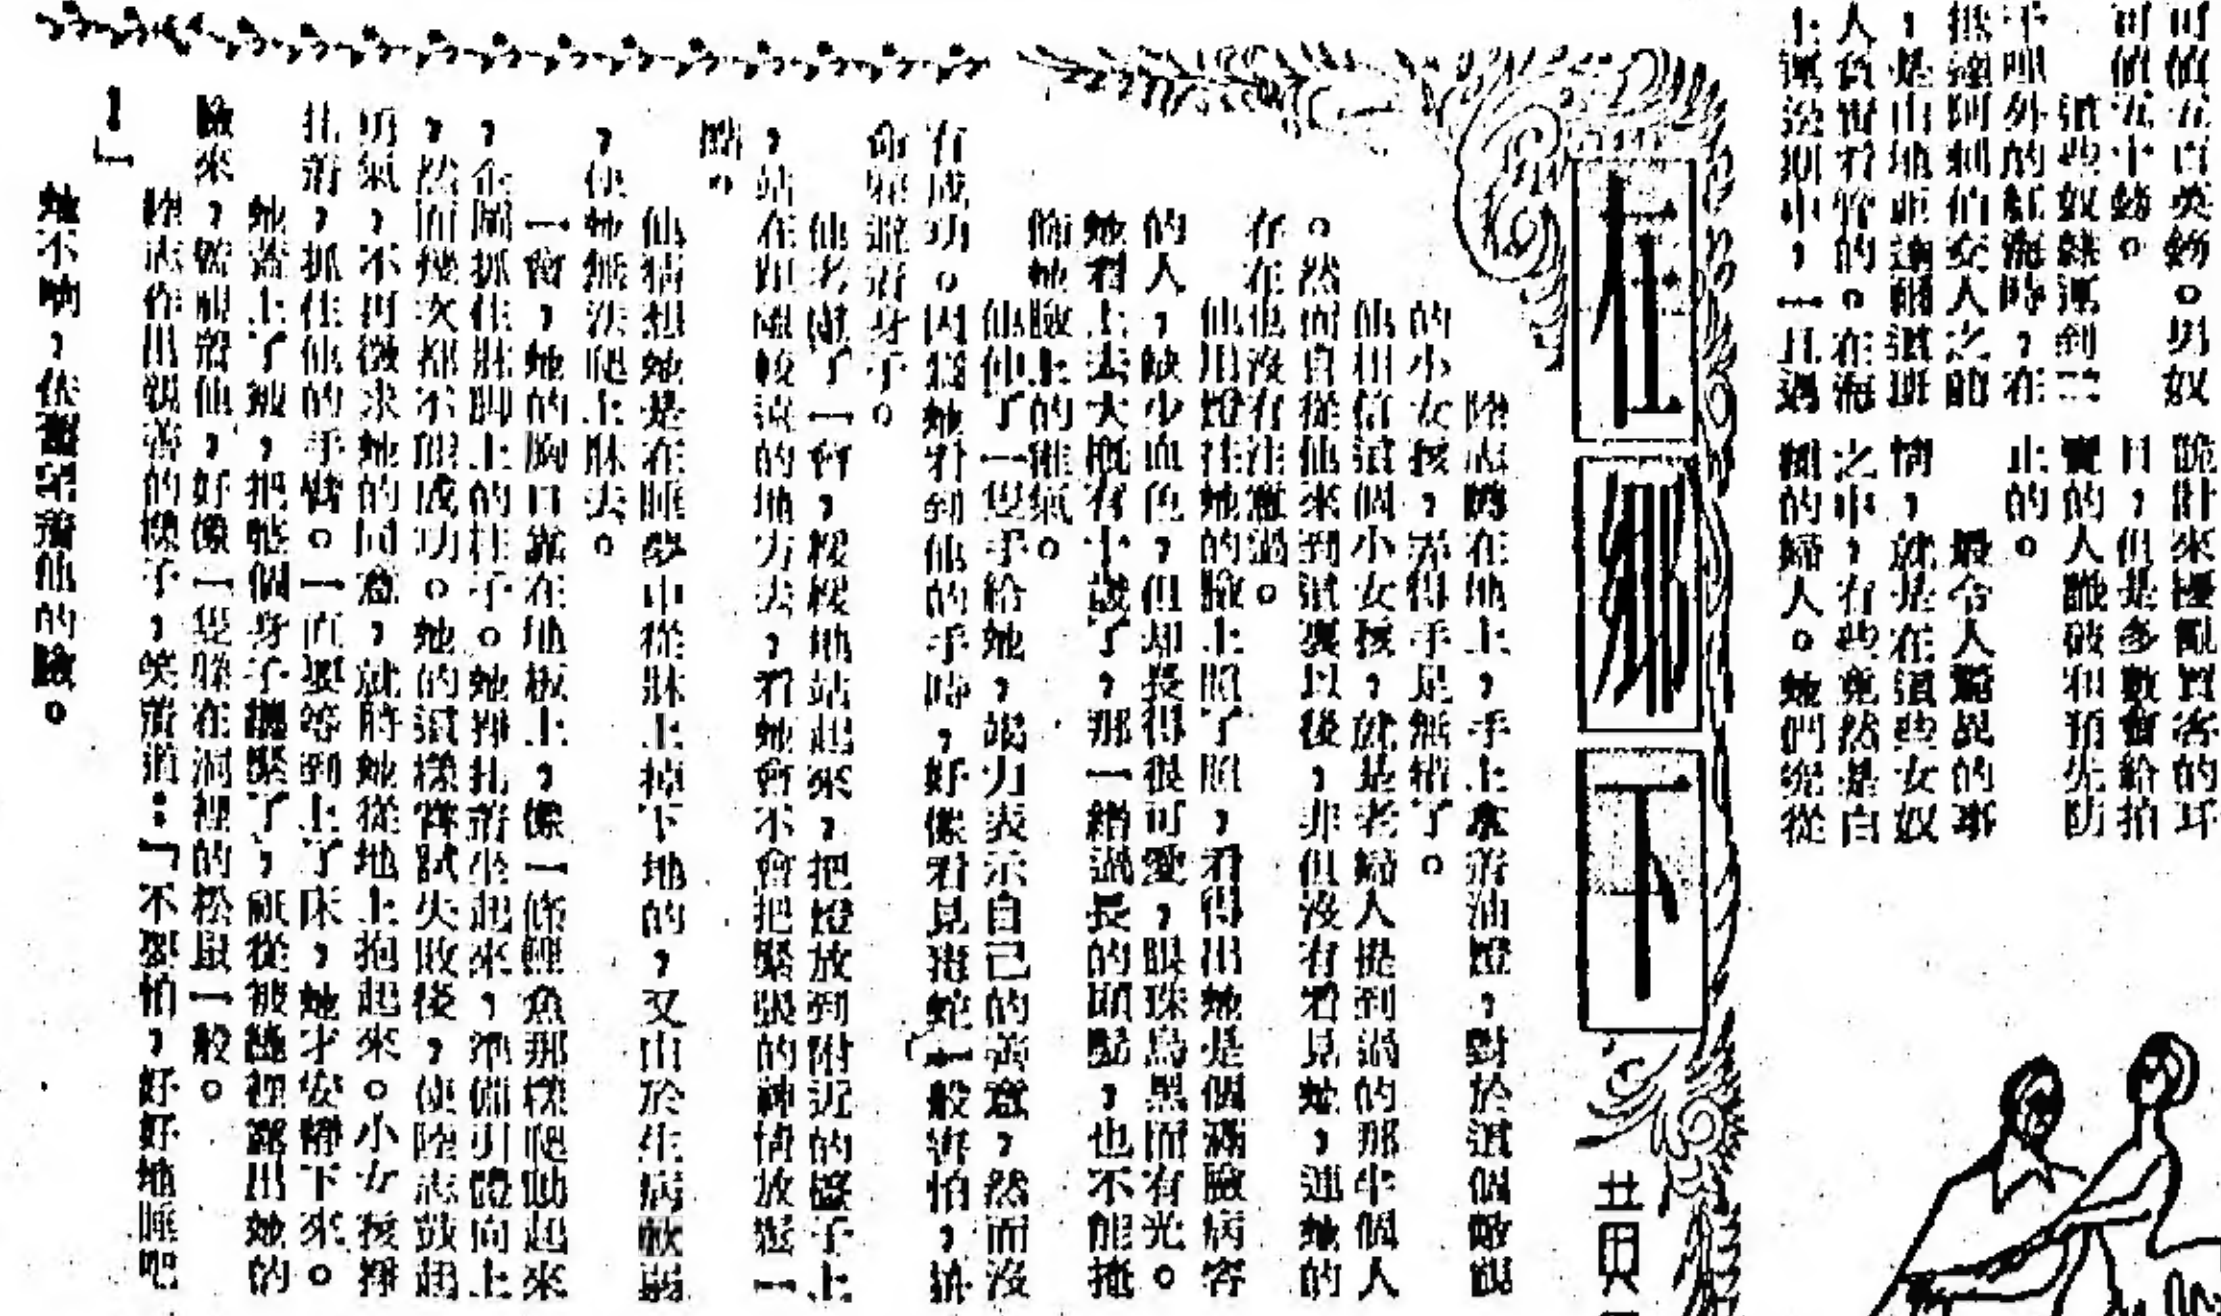 可值五百英鎊。男奴
可值五十鎊。
這些奴隸運到二
千哩外的紅海時，在
抵達阿剌伯女人之前
，是由地亞邁爾這班
人負責看管的。在海
上運送期中，一旦遇
詭計來擾亂買客的耳
目，但是多數會給拍
賣的人識破和預先防
止的。
最令人驚異的事
情，就是在這些女奴
之中，有些竟然是自
的婦人。她們 從
在鄉下
黃
陸志蹲在地上，手上拿着油燈，對於這個敵視
的小女孩，弄得手足無措了。
他相信這個小女孩，就是老婦人提到過的那半個人
。然而自從他來到這裏以後，非但沒有看見她，連她的
存在也沒有注意過。
他用燈往她的臉上照了照，看得出她是個滿臉病容
的人，缺少血色，但却長得很可愛，眼珠烏黑而有光。
她看上去大概有十歲了，那一綹過長的頭髮，也不能掩
飾她臉上的稚氣。
他伸了一隻手給她，竭力表示自己的善意，然而沒
有成功。因爲她看到他的手時，好像看見毒蛇一般害怕，拚
命躲避着身子。
他考慮了一會，緩緩地站起來，把燈放到附近的櫈子上
，站在距離較遠的地方去，看她會不會把緊張的神情放鬆一
點。
他猜想她是在睡夢中從牀上掉下地的，又由於生病軟弱
，使她無法爬上牀去。
一會，她的胸口靠在地板上，像一條鯉魚那樣爬動起來
，企圖抓住牀脚上的柱子。她掙扎着坐起來，準備引體向上
，然而幾次都不能成功。她的這樣嘗試失敗後，使陸志鼓起
勇氣，不再徵求她的同意，就將她從地上抱起來。小女孩掙
扎着，抓住他的手臂。一直要等到上了床，她才安靜下來。
她蓋上了被，把整個身子綑緊了，祇從被縫裡露出她的
臉來，監視着他，好像一隻躲在洞裡的松鼠一般。
陸志作出親善的樣子，笑着道：「不要怕，好好地睡吧
！」
她不响，依舊望着他的臉。